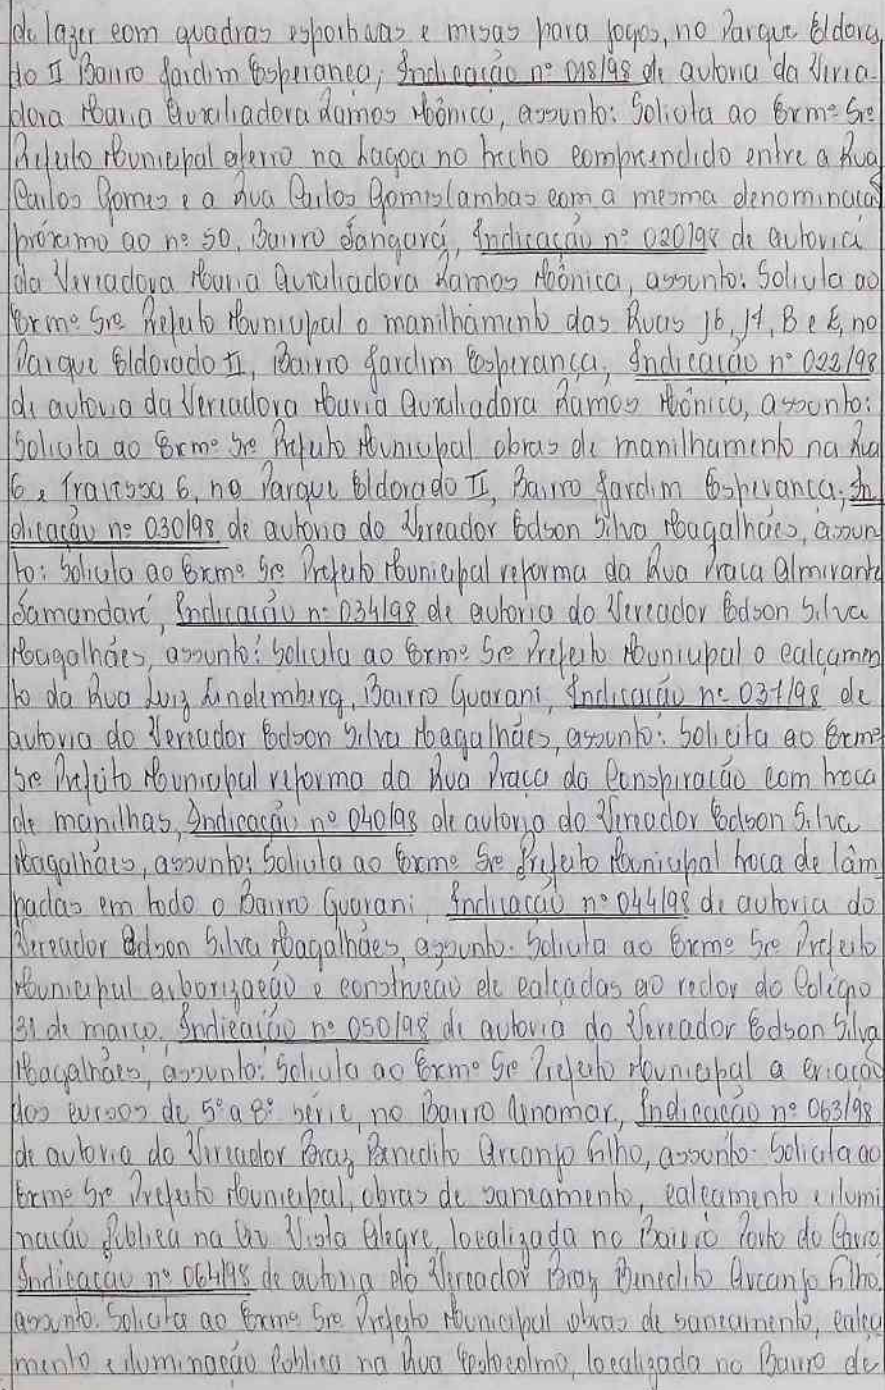 de lazer com quadras esportivas e mesas para jogos, no Parque Eldora
do II Bairro Jardim Esperança, Indicação nº 018/98 de autoria da Verea-
dora Maria Auxiliadora Ramos Mônica, assunto: Solicita ao Exmº Srº
Prefeito Municipal aterro na Lagoa no trecho compreendido entre a Rua
Carlos Gomes e a Rua Carlos Gomes (ambas com a mesma denominaçã
próximo ao nº 50, Bairro Jangará, Indicação nº 020/98 de autoria
da Vereadora Maria Auxiliadora Ramos Mônica, assunto: Solicita ao
Exmº Srº Prefeito Municipal o manilhamento das Ruas 16, 17, B e E, no
Parque Eldorado II, Bairro Jardim Esperança, Indicação nº 022/98
de autoria da Vereadora Maria Auxiliadora Ramos Mônica, assunto:
Solicita ao Exmº Srº Prefeito Municipal obras de manilhamento na Rua
6 e Travessa 6, no Parque Eldorado II, Bairro Jardim Esperança, In
dicação nº 030/98 de autoria do Vereador Edson Silva Magalhães, assun
to: Solicita ao Exmº Srº Prefeito Municipal reforma da Rua Praça Almirante
Tamandaré, Indicação nº 034/98 de autoria do Vereador Edson Silva
Magalhães, assunto: Solicita ao Exmº Srº Prefeito Municipal o calçamen
to da Rua Luiz Lindemberg, Bairro Guarani, Indicação nº 037/98 de
autoria do Vereador Edson Silva Magalhães, assunto: Solicita ao Exmº
Srº Prefeito Municipal reforma da Rua Praça da Conspiração com troca
de manilhas, Indicação nº 040/98 de autoria do Vereador Edson Silva
Magalhães, assunto: Solicita ao Exmº Srº Prefeito Municipal troca de lâm
padas em todo o Bairro Guarani, Indicação nº 044/98 de autoria do
Vereador Edson Silva Magalhães, assunto: Solicita ao Exmº Srº Prefeito
Municipal arborização e construção de calçadas ao redor do Colégio
31 de março. Indicação nº 050/98 de autoria do Vereador Edson Silva
Magalhães, assunto: Solicita ao Exmº Srº Prefeito Municipal a criação
dos cursos de 5ª a 8ª série, no Bairro Unamar, Indicação nº 063/98
de autoria do Vereador Braz Benedito Arcanjo Filho, assunto: Solicita ao
Exmº Srº Prefeito Municipal, obras de saneamento, calçamento e ilumi
nação Pública na Av. Vista Alegre, localizada no Bairro Porto do Carro
Indicação nº 064/98 de autoria do Vereador Braz Benedito Arcanjo Filho,
assunto: Solicita ao Exmº Srº Prefeito Municipal obras de saneamento, calça
mento e iluminação Pública na Rua Estocolmo, localizada no Bairro de